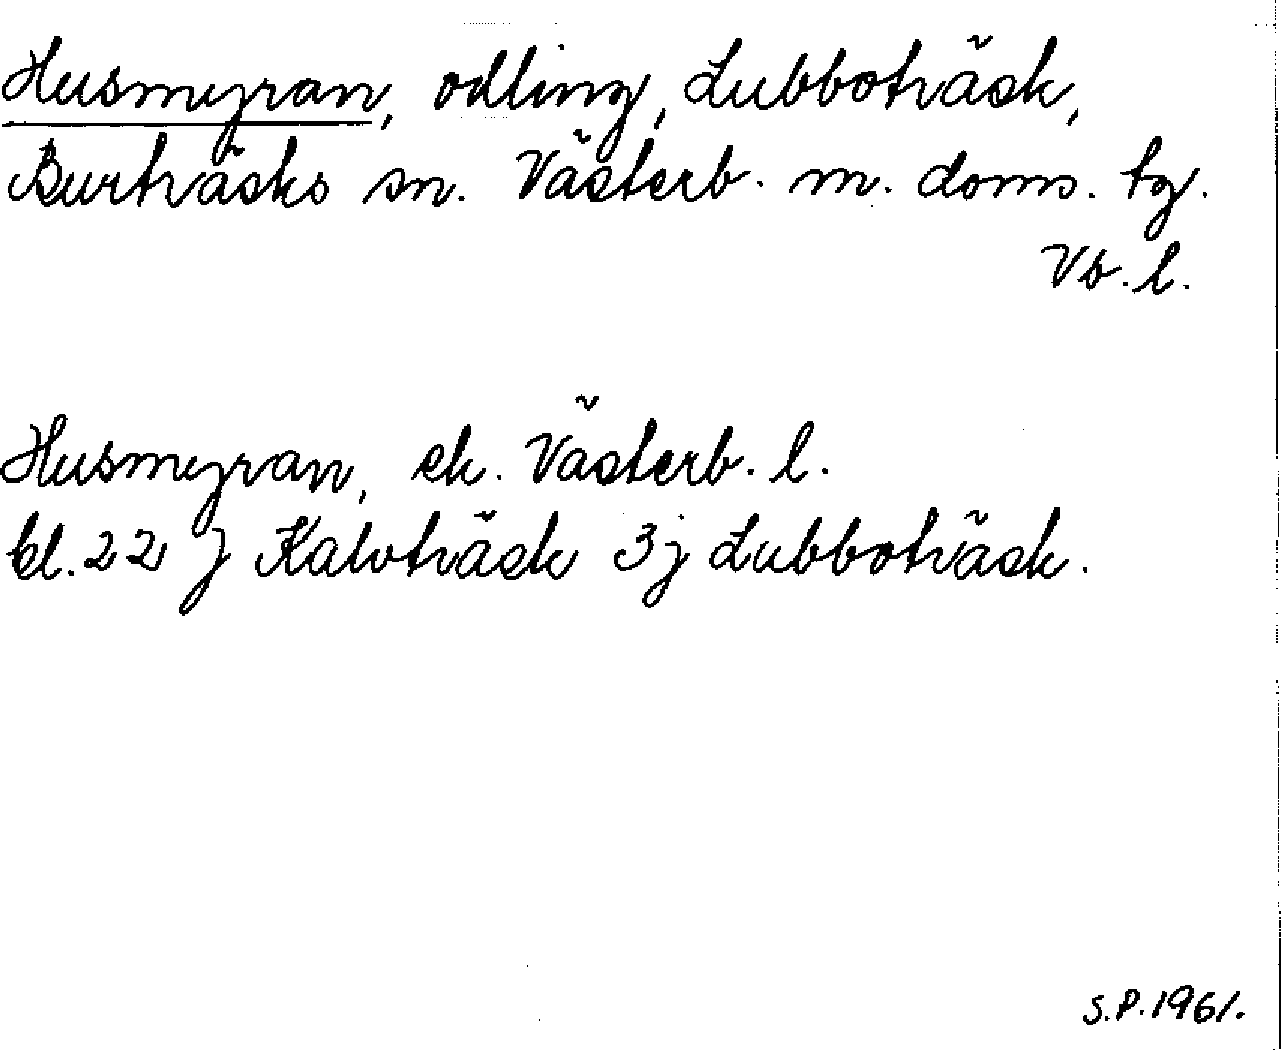 Husmyran, odling, Lubboträsk,
Burträsks sn. Västerb. m. doms. tg.
Vb. l.
Husmyran, ek. Västerb. l.
bl. 22 j Kalvträsk 3j Lubboträsk.
S.P. 1961.